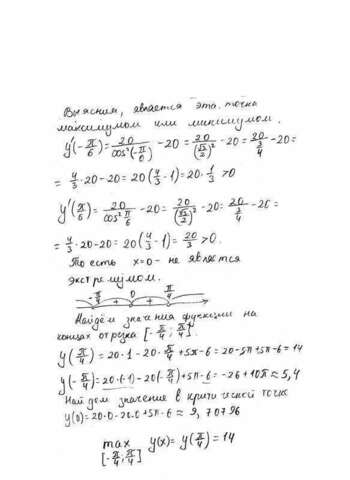 Выясним, является эта точка
максимумом или минимумом.
y'(-π/6) = 20/cos²(-π/6) - 20 = 20/(√3/2)² - 20 = 20/(3/4) - 20 =
= 4/3 · 20 - 20 = 20(4/3 - 1) = 20 · 1/3 > 0
y'(π/6) = 20/cos² π/6 - 20 = 20/(√3/2)² - 20 = 20/(3/4) - 20 =
= 4/3 · 20 - 20 = 20(4/3 - 1) = 20/3 > 0.
То есть x=0 - не является
экстремумом.
-π/4 + 0 + π/4
Найдём значения функции на
концах отрезка [-π/4; π/4].
y(π/4) = 20·1 - 20·π/4 + 5π - 6 = 20 - 5π + 5π - 6 = 14
y(-π/4) = 20·(-1) - 20(-π/4) + 5π - 6 = -26 + 10π ≈ 5,4
Найдем значение в критической точке
y(0) = 20·0 - 20·0 + 5π - 6 ≈ 9,70796
max y(x) = y(π/4) = 14
[-π/4; π/4]